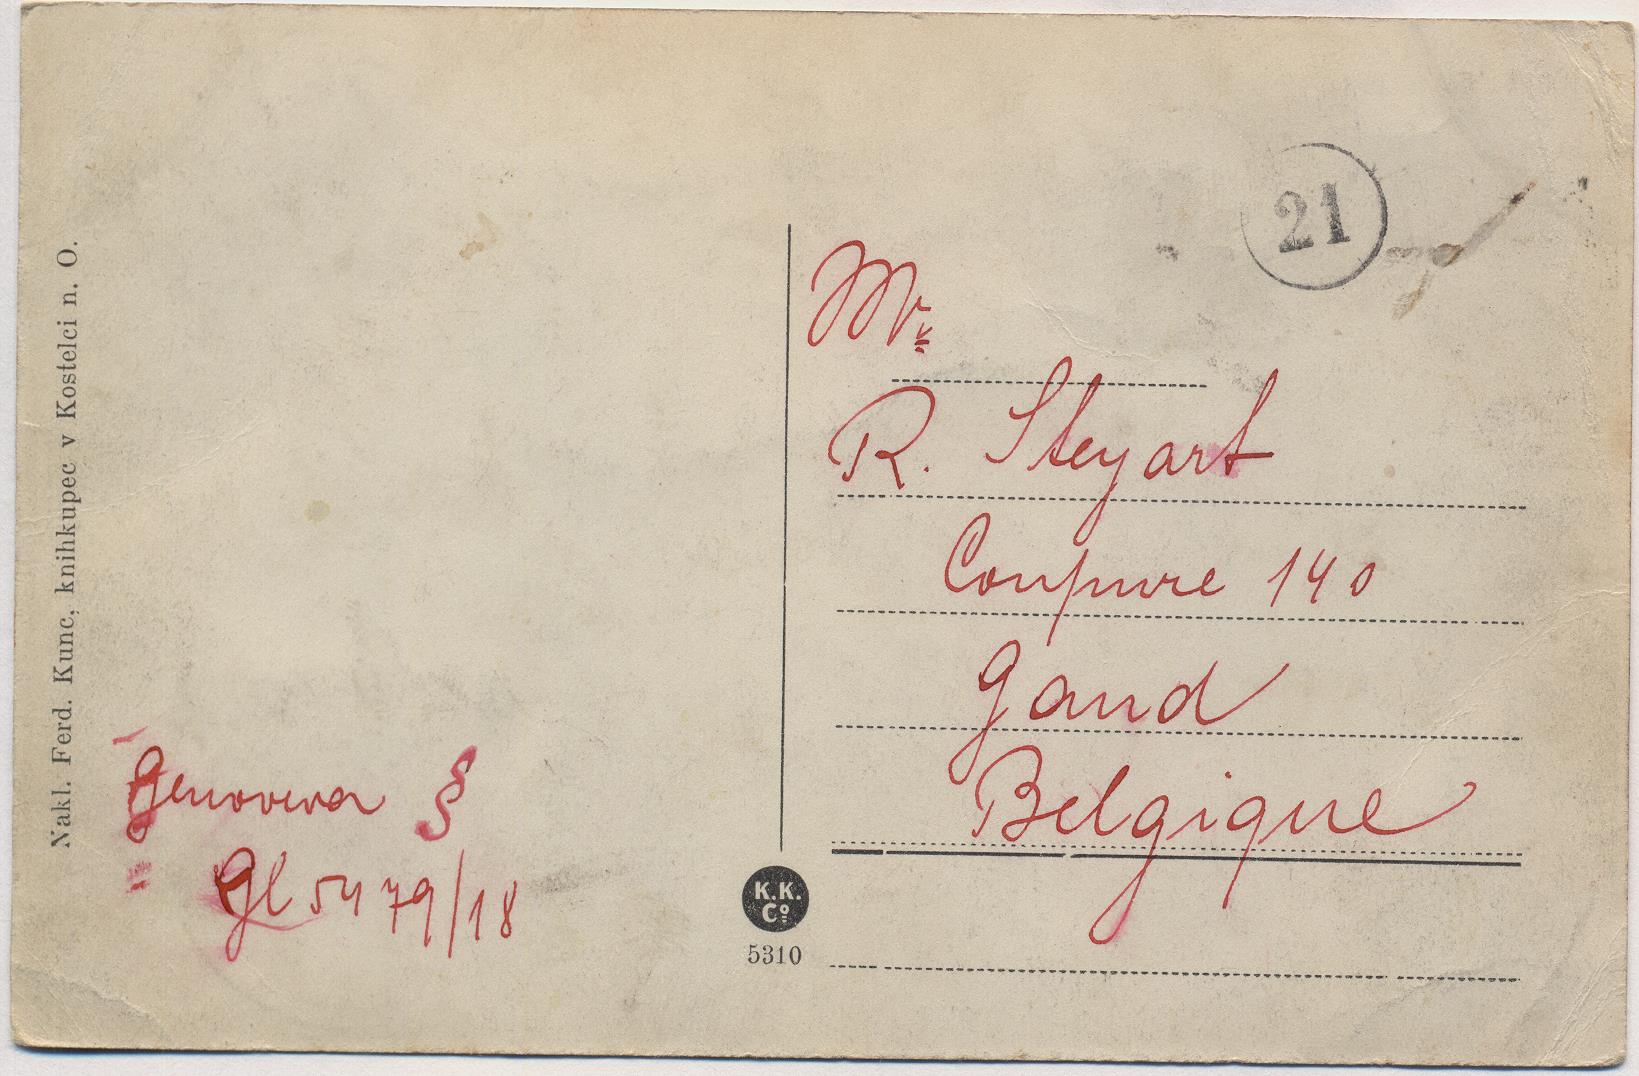 21
Nakl. Ferd. Kunc, knihkupec v Kostelci n. O.
Mr
R. Steyart
Coupure 140
Gand
Belgique
Genoveva §
Gl 5479/18
K.K.
Co
5310